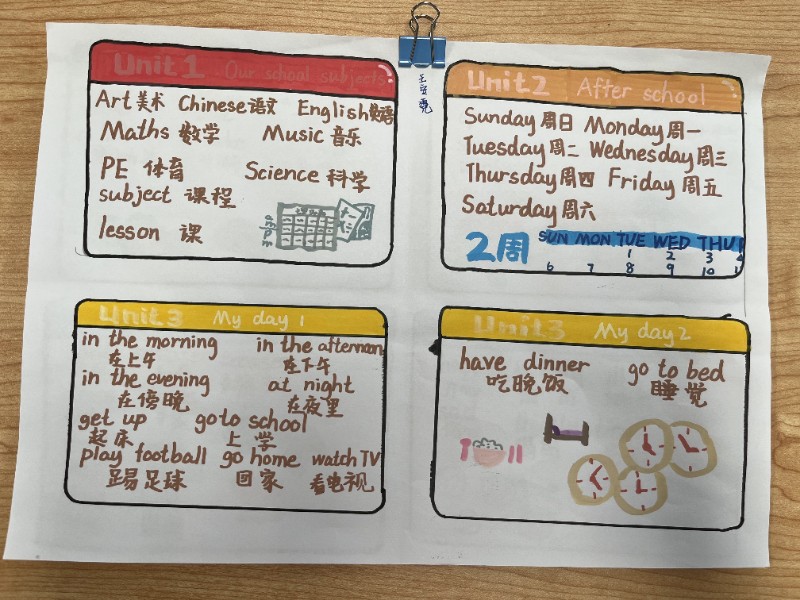 Unit 1 Our school subjects
Art 美术 Chinese 语文 English 英语
Maths 数学 Music 音乐
PE 体育 Science 科学
subject 课程
lesson 课
Unit2 After school
Sunday 周日 Monday 周一
Tuesday 周二 Wednesday 周三
Thursday 周四 Friday 周五
Saturday 周六
2周 SUN MON TUE WED THU
1 2 3 4
6 7 8 9 10
Unit3 My day 1
in the morning in the afternoon
在上午 在下午
in the evening at night
在傍晚 在夜里
get up go to school
起床 上学
play football go home watch TV
踢足球 回家 看电视
Unit3 My day 2
have dinner go to bed
吃晚饭 睡觉